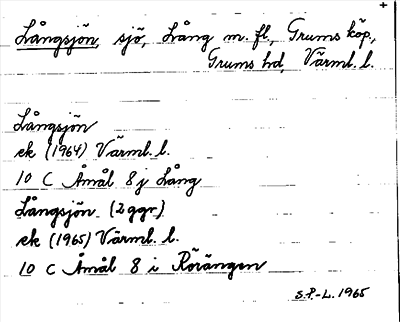 +
Långsjön, sjö, Lång m. fl., Grums köp.,
Grums hd, Värml. l.
Långsjön
ek (1964) Värml. l.
10 C Åmål 8 j Lång
Långsjön (2 ggr)
ek (1965) Värml. l.
10 C Åmål 8 i Rörängen
S.P.-L. 1965